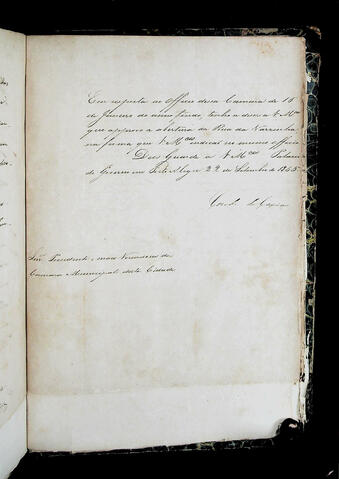 Em resposta ao Officio dessa Camara de 16
de Janeiro do anno findo, tenho a dizer a V. Mces
que approvo a abertura da Rua da Varzinha
na forma que V. Mces indicão no mesmo officio
Deos Guarde a V. Mces Palacio
do Governo em Porto Alegre 22 de Setembro de 1855
Snr. Presidente e mais Vereadores da
Camara Municipal desta Cidade